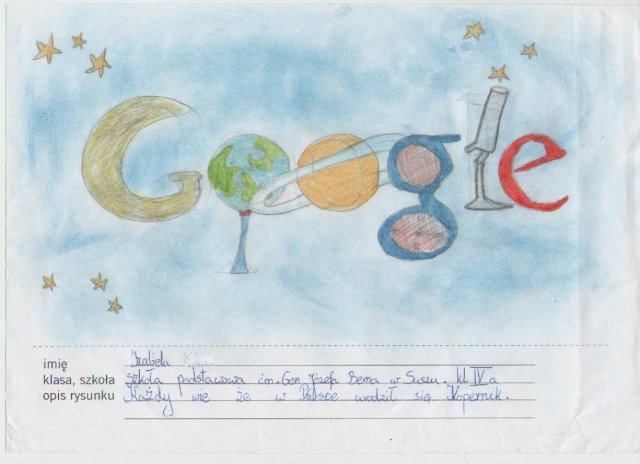 Google
imię Izabela
klasa, szkoła Szkoła podstawowa im. Gen Józefa Bema w Suszu. kl IV a
opis rysunku Każdy wie że w Polsce urodził się Kopernik.